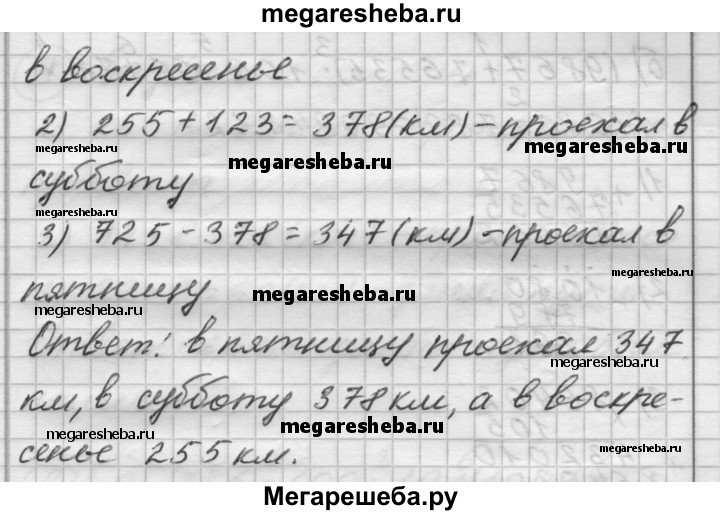 megaresheba.ru
в воскресенье
2) 255 + 123 = 378 (км) - проехал в
megaresheba.ru megaresheba.ru
megaresheba.ru
субботу
3) 725 - 378 = 347 (км) - проехал в
megaresheba.ru
megaresheba.ru
пятницу megaresheba.ru
megaresheba.ru
Ответ: в пятницу проехал 347
megaresheba.ru
км, в субботу 378 км, а в воскре-
megaresheba.ru megaresheba.ru megaresheba.ru
сенье 255 км.
Мегарешеба.ру